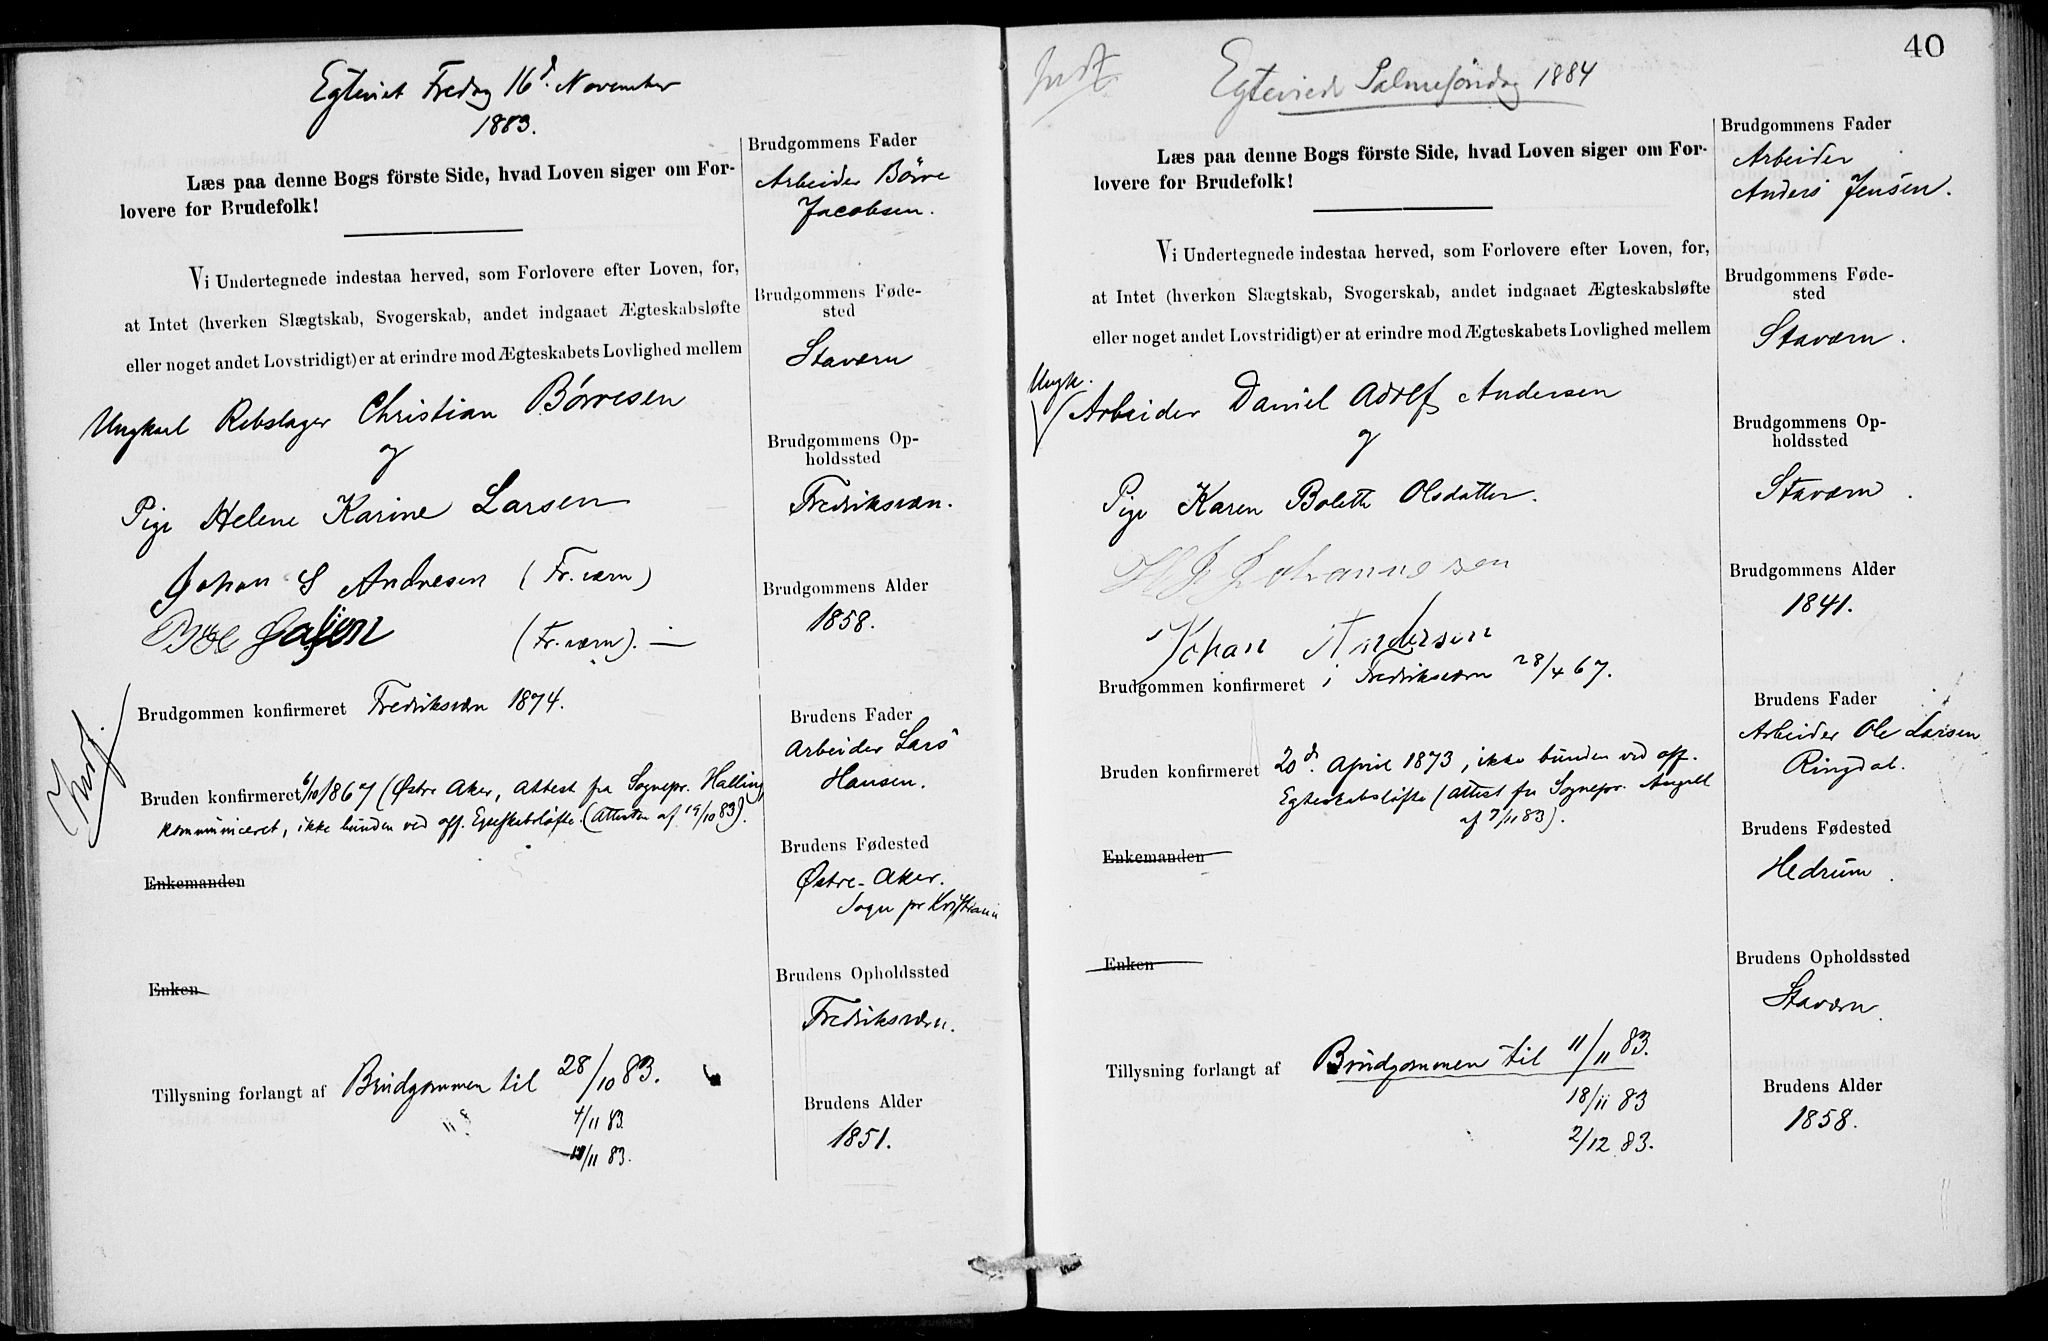 Egteviet Fredag 16d. November
1883.
Læs paa denne Bogs förste Side, hvad Loven siger om For-
lovere for Brudefolk!
Vi Undertegnede indestaa herved, som Forlovere efter Loven, for,
at Intet (hverken Slægtskab, Svogerskab, andet indgaaet Ægteskabsløfte
eller noget andet Lovstridigt) er at erindre mod Ægteskabets Lovlighed mellem
Ungkarl Rebslager Christian Börresen
og
Pige Helene Karine Larsen
Johan S Andresen (Fr.værn)
(Fr.værn). —
Brudgommen konfirmeret Fredriksværn 1874.
Indf.
Bruden konfirmeret 6/10 1867 (Østre Aker, Attest fra Sognepr. Halling
kommuniceret, ikke bunden ved off. Egteskabsløfte (Attesten af 19/10 83).
Enkemanden
Enken
Tillysning forlangt af Brudgommen til 28/10 83.
4/11 83.
11/11 83.
Brudgommens Fader
Arbeider Börre
Jacobsen.
Brudgommens Føde-
sted
Staværn
Brudgommens Op-
holdssted
Fredriksværn.
Brudgommens Alder
1858.
Brudens Fader
Arbeider Lars
Hansen.
Brudens Fødested
Østre-Aker.
Sogn pr Kristiania
Brudens Opholdssted
Fredriksværn.
Brudens Alder
1851.
40
Indf.
Egteviede Palmesöndag 1884
Læs paa denne Bogs förste Side, hvad Loven siger om For-
lovere for Brudefolk!
Vi Undertegnede indestaa herved, som Forlovere efter Loven, for,
at Intet (hverken Slægtskab, Svogerskab, andet indgaaet Ægteskabsløfte
eller noget andet Lovstridigt) er at erindre mod Ægteskabets Lovlighed mellem
Ungk.
Arbeider Daniel Adolf Andersen
og
Pige Karen Bolette Olsdatter.
Johannesen
Johan Andersen
Brudgommen konfirmeret i Fredriksværn 28/4 67.
Bruden konfirmeret 20d. April 1873, ikke bunden ved off.
Egteskabsløfte (Attest fra Sognepr. Angell
af 7/11 83).
Enkemanden
Enken
Tillysning forlangt af Brudgommen til 11/11 83.
18/11 83
2/12 83.
Brudgommens Fader
Arbeider
Anders Jensen.
Brudgommens Føde-
sted
Staværn.
Brudgommens Op-
holdssted
Staværn.
Brudgommens Alder
1841.
Brudens Fader
Arbeider Ole Larsen
Ringdal.
Brudens Fødested
Hedrum.
Brudens Opholdssted
Staværn.
Brudens Alder
1858.